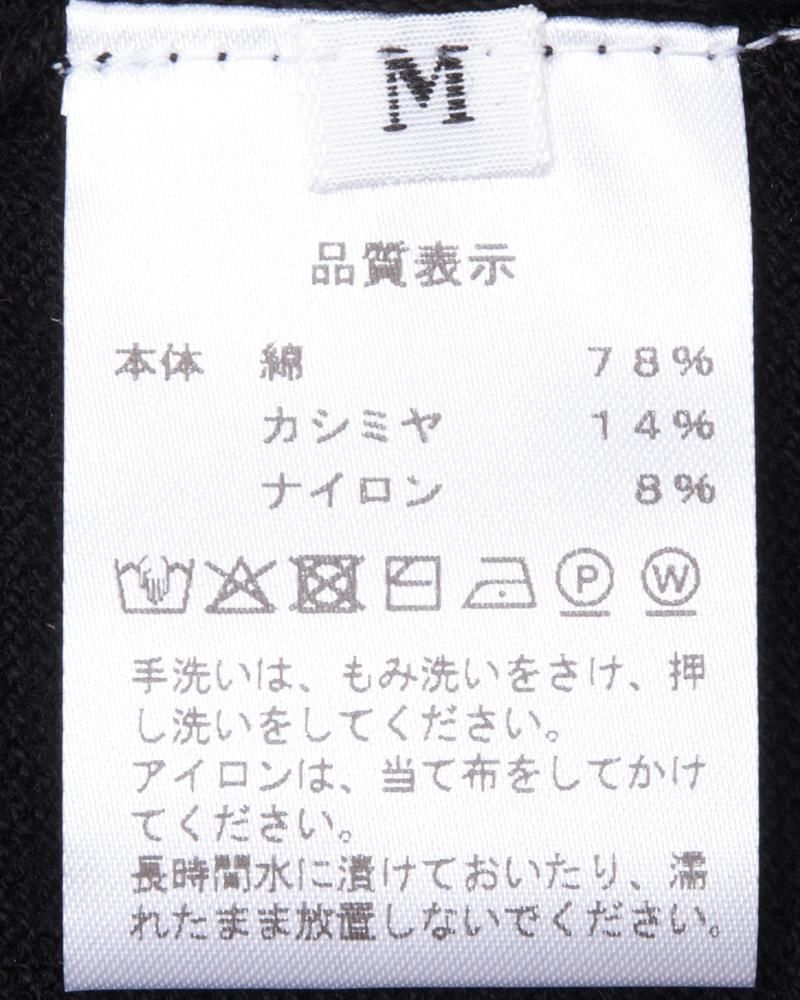 M
品質表示
本体 綿 78%
カシミヤ 14%
ナイロン 8%
P W
手洗いは、もみ洗いをさけ、押
し洗いをしてください。
アイロンは、当て布をしてかけ
てください。
長時間水に漬けておいたり、濡
れたまま放置しないでください。